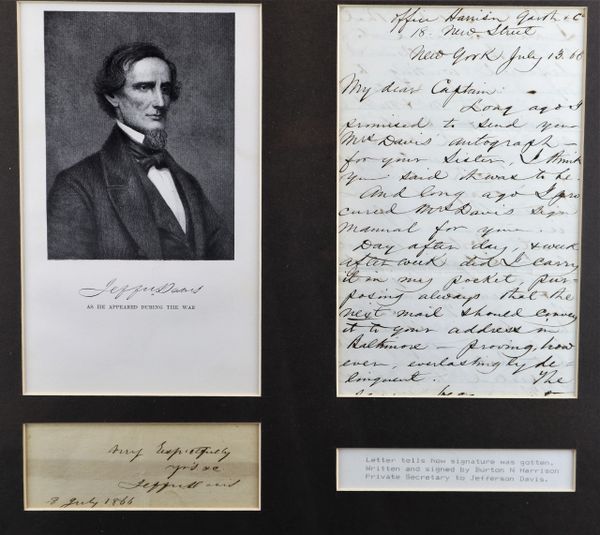 Jeffn. Davis
AS HE APPEARED DURING THE WAR
Very Respectfully
yrs &c
Jeffn. Davis
8 July 1866
Office Harrison Garth & Co
18. New Street
New York July 13. 66
My dear Captain:
Long ago I
promised to send you
Mrs Davis' autograph –
for your Sister, I think
you said it was to be
And long ago I pro
cured Mrs Davis sign
manual for you.
Day after day, & week
after week did I carry
it in my pocket pur-
posing always that the
next mail should convey
it to your address in
Baltimore – proving, how
ever, everlastingly de-
linquent. The
Letter tells how signature was gotten.
Written and signed by Burton N Harrison
Private Secretary to Jefferson Davis.